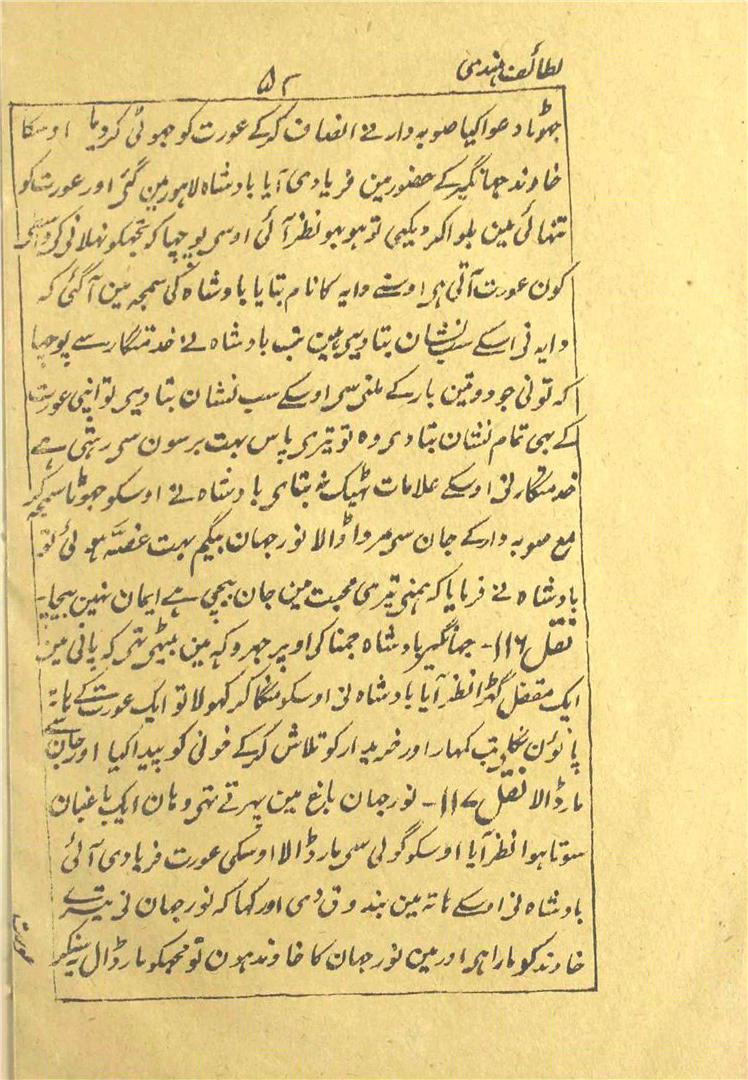 لطائف ہندی
۵۲
جھوٹا دعوا کیا صوبہ دار نے انصاف کرکے عورت کو جھوٹی کردیا اوسکا
خاوند جہانگیر کے حضور مین فریادی آیا بادشاہ لاہور مین گئی اور عورت کو
تنہائی مین بلوا کر دیکھی تو ہوبہو نظر آئی اوسی پوچھا کہ تجھکو نہلانی
کون عورت آتی ہی اوسنے دایہ کا نام بتایا بادشاہ کی سمجہ مین آگئی کہ
دایہ نی اسکے سب نشان بتا دیی ہین تب بادشاہ نے خدمتگار سے پوچہا
کہ تونی جو دو تین بار کے ملنی سی اوسکے سب نشان بتا دیی تو اپنی عورت
کے بہی تمام نشان بتا دی وہ تو تیری پاس بہت برسون سی رہتی ہے
خدمتگار نی اوسکے علامات ٹہیک نہ بتای بادشاہ نے اوسکو جہوٹا سمجہ کر
مع صوبہ دار کے جان سی مروا ڈالا نور جہان بیگم بہت غصّہ ہوئی تو
بادشاہ نے فرمایا کہ ہمنی تیری محبت مین جان بیچی ہے ایمان نہین بیچا ـ
نقل ۱۱۶ ـ جہانگیر بادشاہ جمنا کی اوپر جہروکہ مین بیٹہی تہی کہ پانی مین
ایک مقفل گہڑا نظر آیا بادشاہ نی اوسکو منگا کر کہولا تو ایک عورت کے ہاتہ
پانوٴن نکلی تب کمہار اور خریدار کو تلاش کرکے خونی کو پیدا کیا اور جان سے
مار ڈالا نقل ۱۱۷ ـ نور جہان باغ مین پہرتے تہی وہان ایک باغبان
سوتا ہوا نظر آیا اوسکو گولی سی مار ڈالا اوسکی عورت فریادی آئی
بادشاہ نی اوسکے ہاتہ مین بندوق دی اور کہا کہ نور جہان نی تیرے
خاوند کو مارا ہی اور مین نور جہان کا خاوند ہون تو مجہکو مار ڈال یہ سنکر
عورت